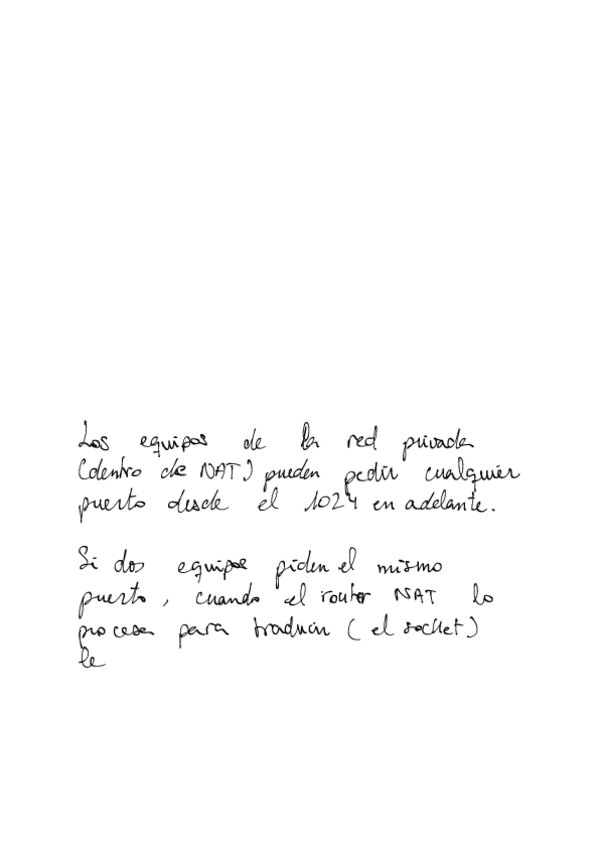 Los equipos de la red privada
(dentro de NAT) pueden pedir cualquier
puerto desde el 1024 en adelante.
Si dos equipos piden el mismo
puerto, cuando el router NAT lo
procesa para traducir (el socket)
le